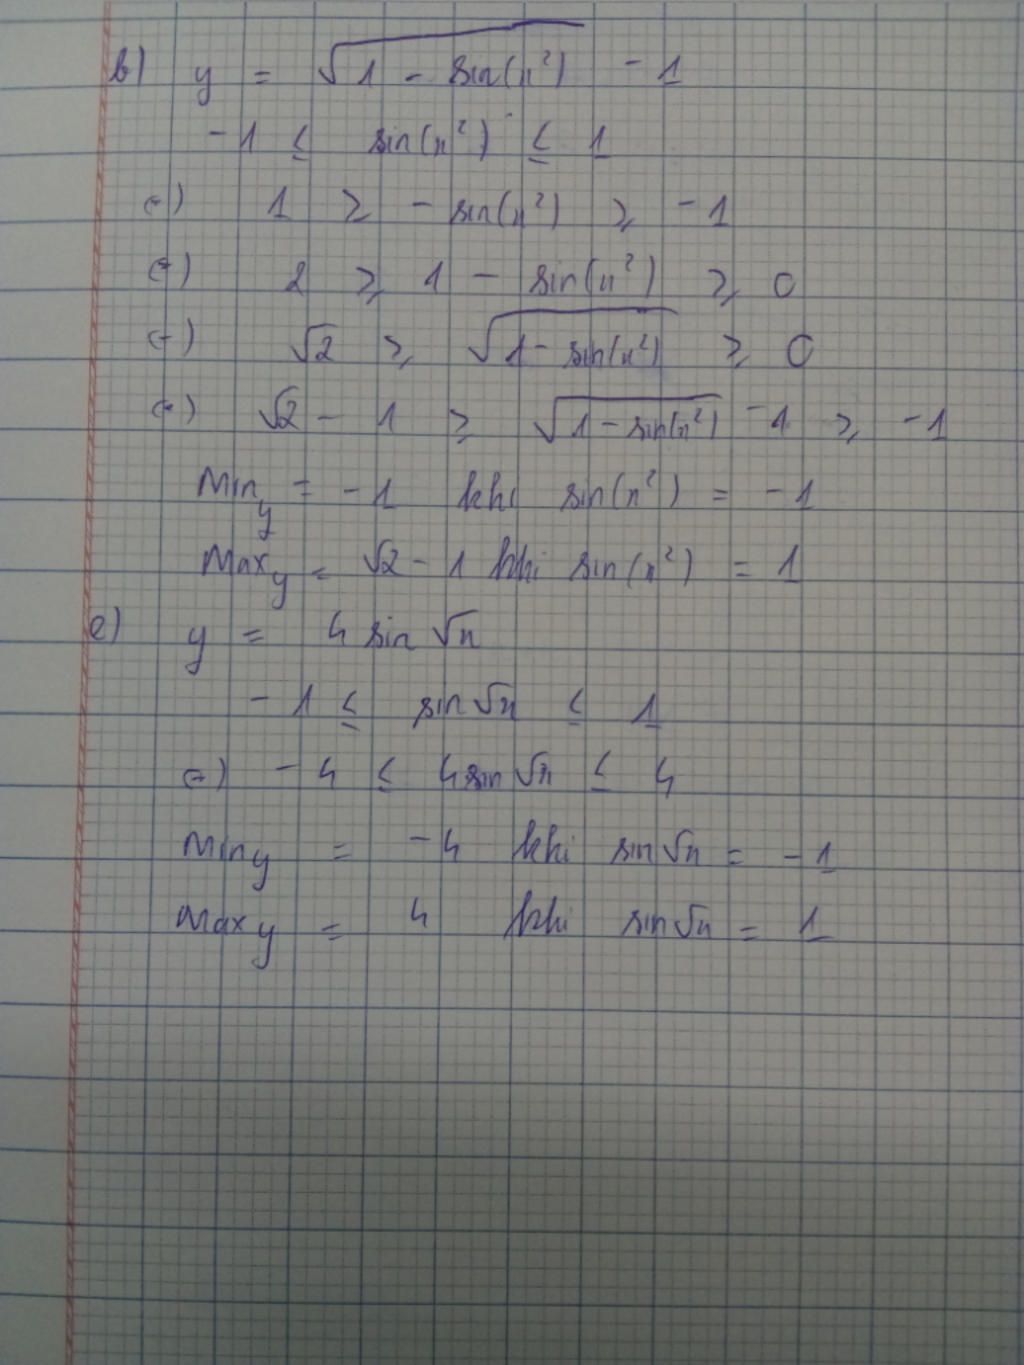 b) y = √(1 - sin(x²)) - 1
-1 ≤ sin(x²) ≤ 1
(=) 1 ≥ - sin(x²) ≥ -1
(=) 2 ≥ 1 - sin(x²) ≥ 0
(=) √2 ≥ √(1 - sin(x²)) ≥ 0
(=) √2 - 1 ≥ √(1 - sin(x²)) - 1 ≥ -1
Min y = -1 khi sin(x²) = -1
Max y = √2 - 1 khi sin(x²) = 1
c) y = 4 sin √x
-1 ≤ sin √x ≤ 1
(=) -4 ≤ 4 sin √x ≤ 4
Min y = -4 khi sin √x = -1
Max y = 4 khi sin √x = 1